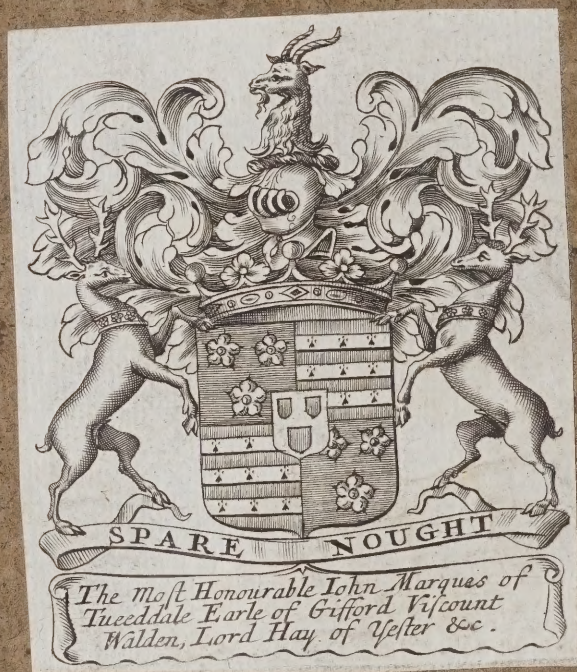 SPARE NOUGHT
The Moſt Honourable Iohn Marques of
Tweeddale Earle of Gifford Viſcount
Walden, Lord Hay of Yeſter &c.